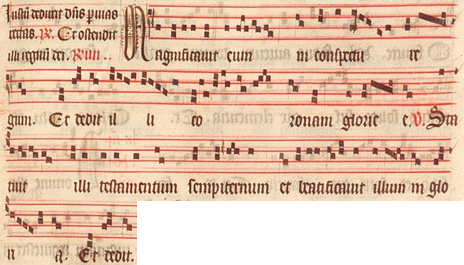 Justū deduxit dn̄s p uias
rectas. R. Et ostendit
illi regnū dei. Run..
Magnificauit eum in conspectu re
gum. Et dedit il li co ronam glorie e. V. Sta
tuit illi testamentum sempiternum et beatificauit illum in glo
ri a. Et dedit.